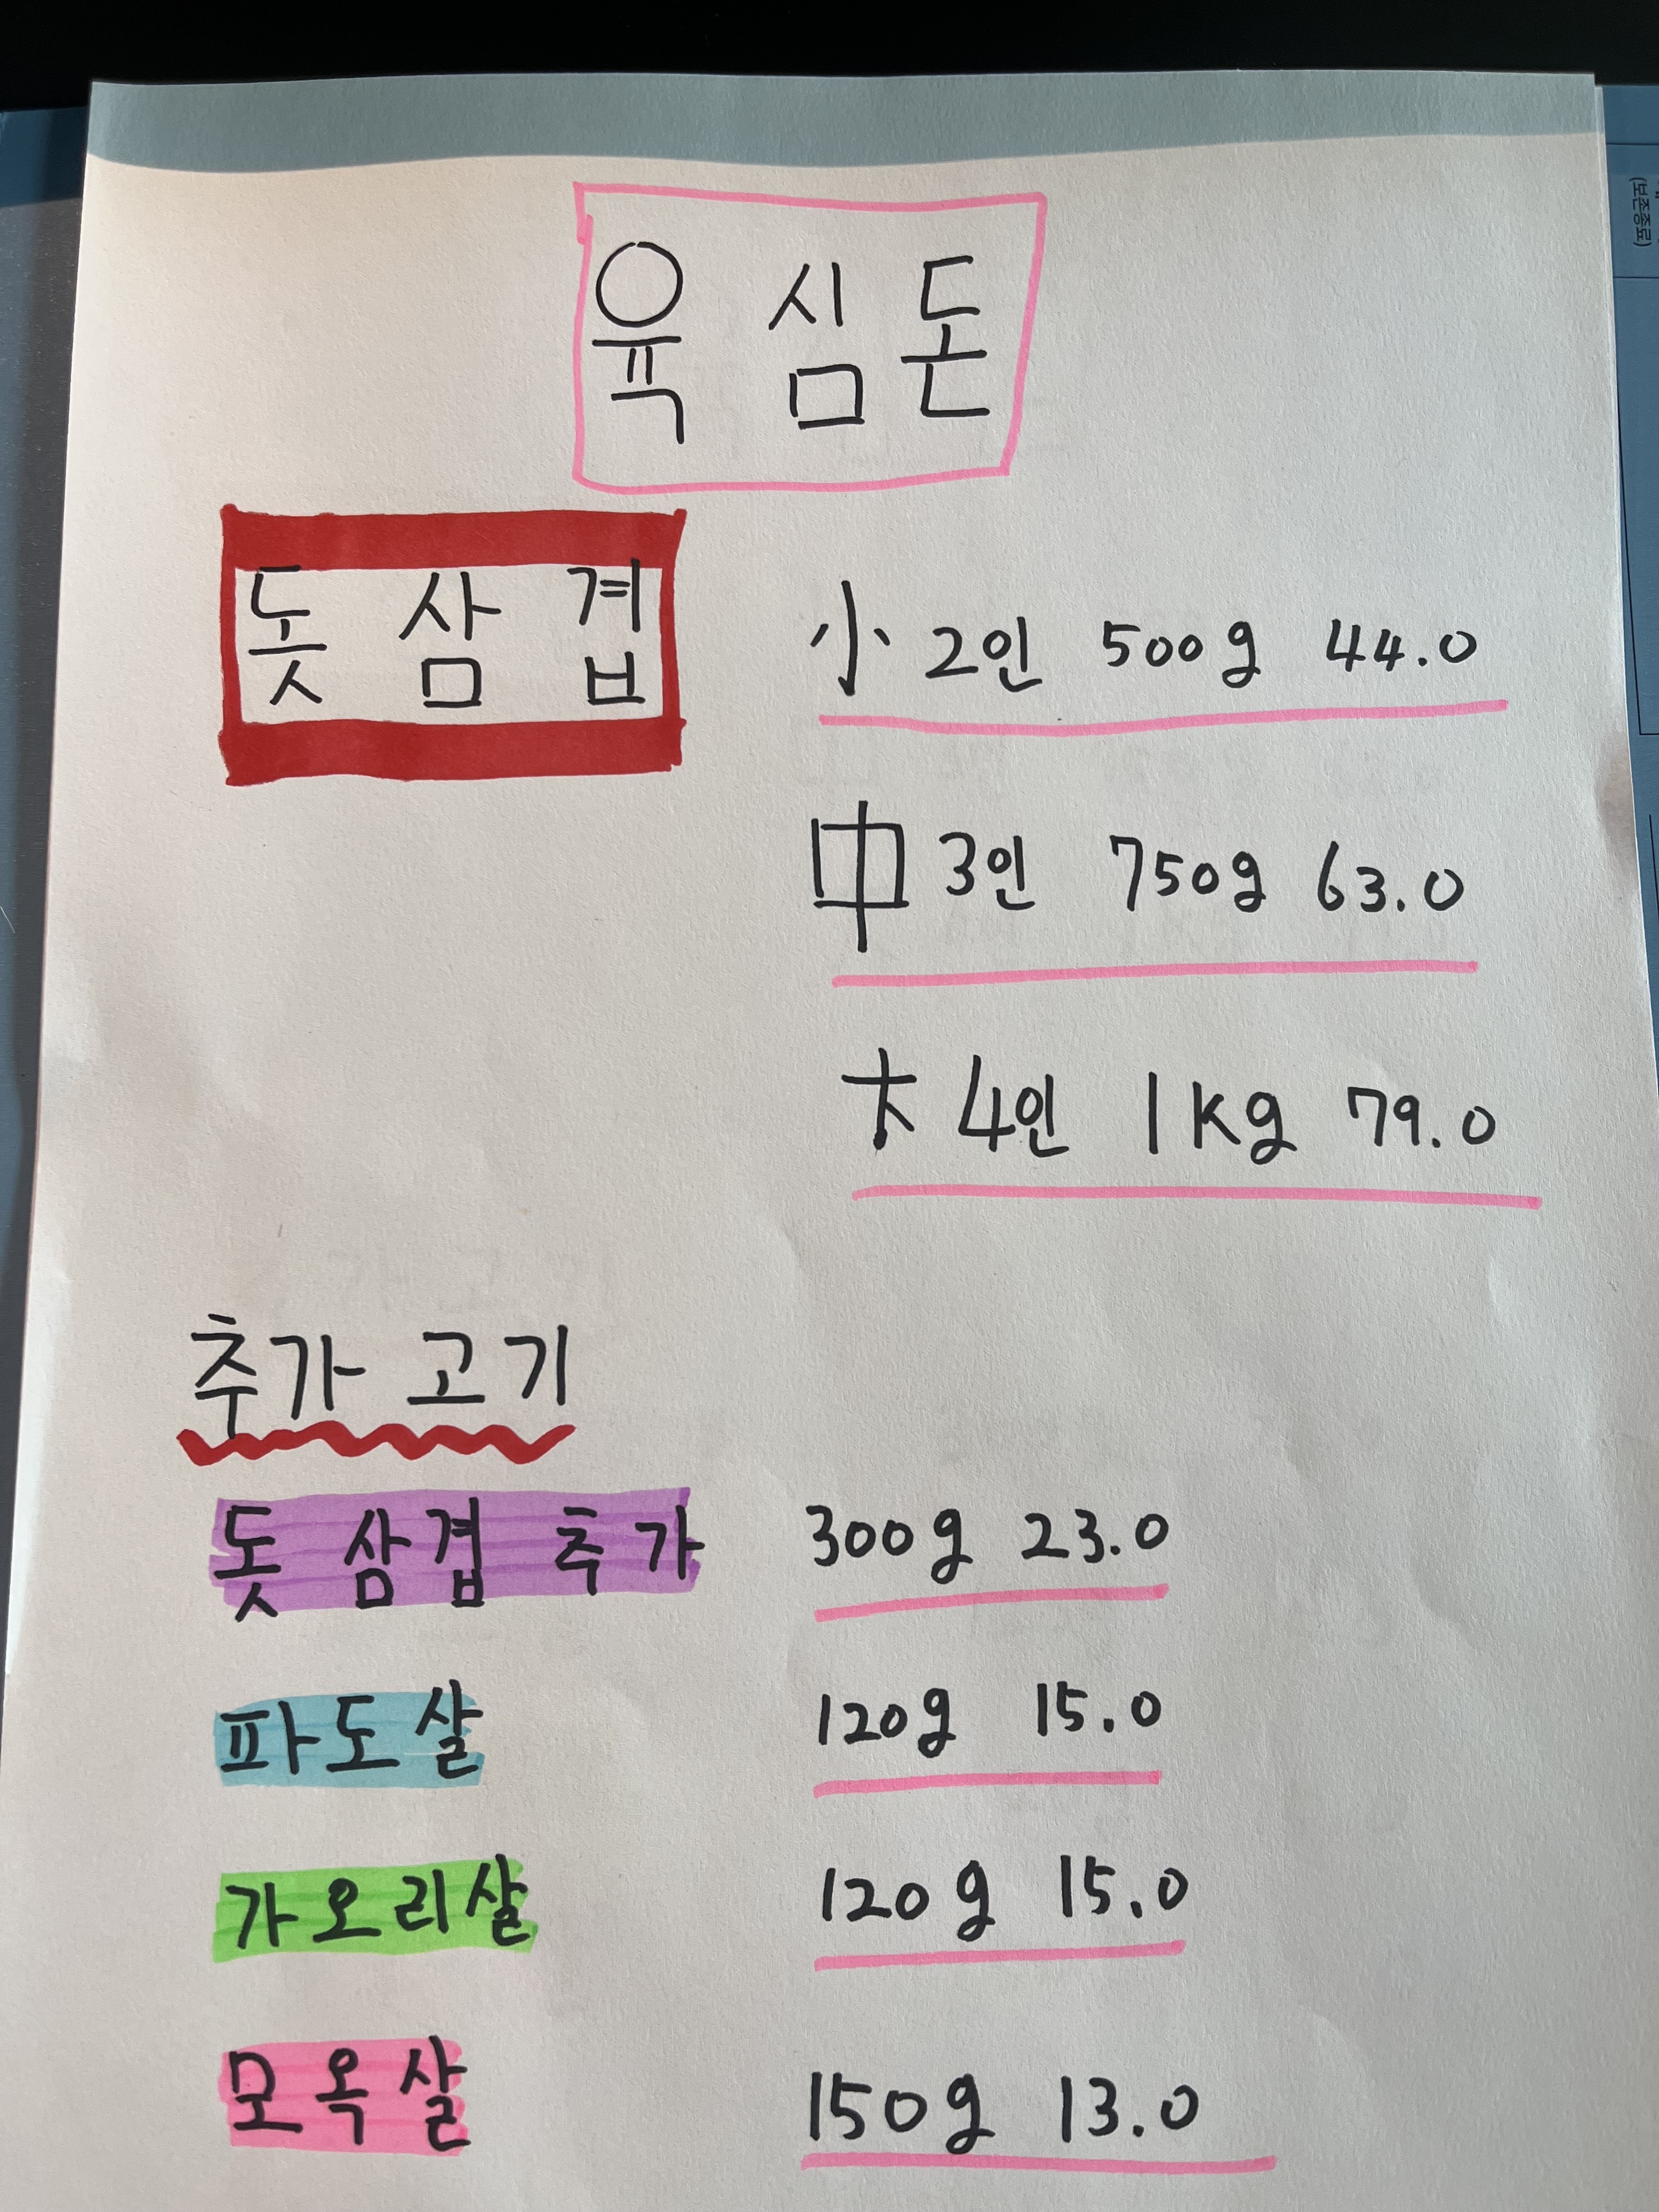 육 심 돈
돗 삼 겹
小 2인 500g 44.0
中 3인 750g 63.0
大 4인 1kg 79.0
추가 고기
돗 삼겹 추가 300g 23.0
파도살 120g 15.0
가오리살 120g 15.0
모옥살 150g 13.0
(보존종료)